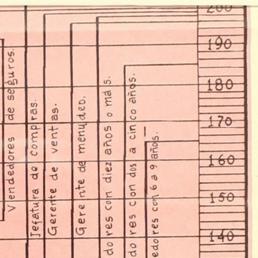 Vendedores de seguros.
Jefatura de compras.
Gerente de ventas.
Gerente de menudeo.
do res con diez años o más.
do res con dos a cinco años.
edores con 6 a 9 años.
200
190
180
170
160
150
140